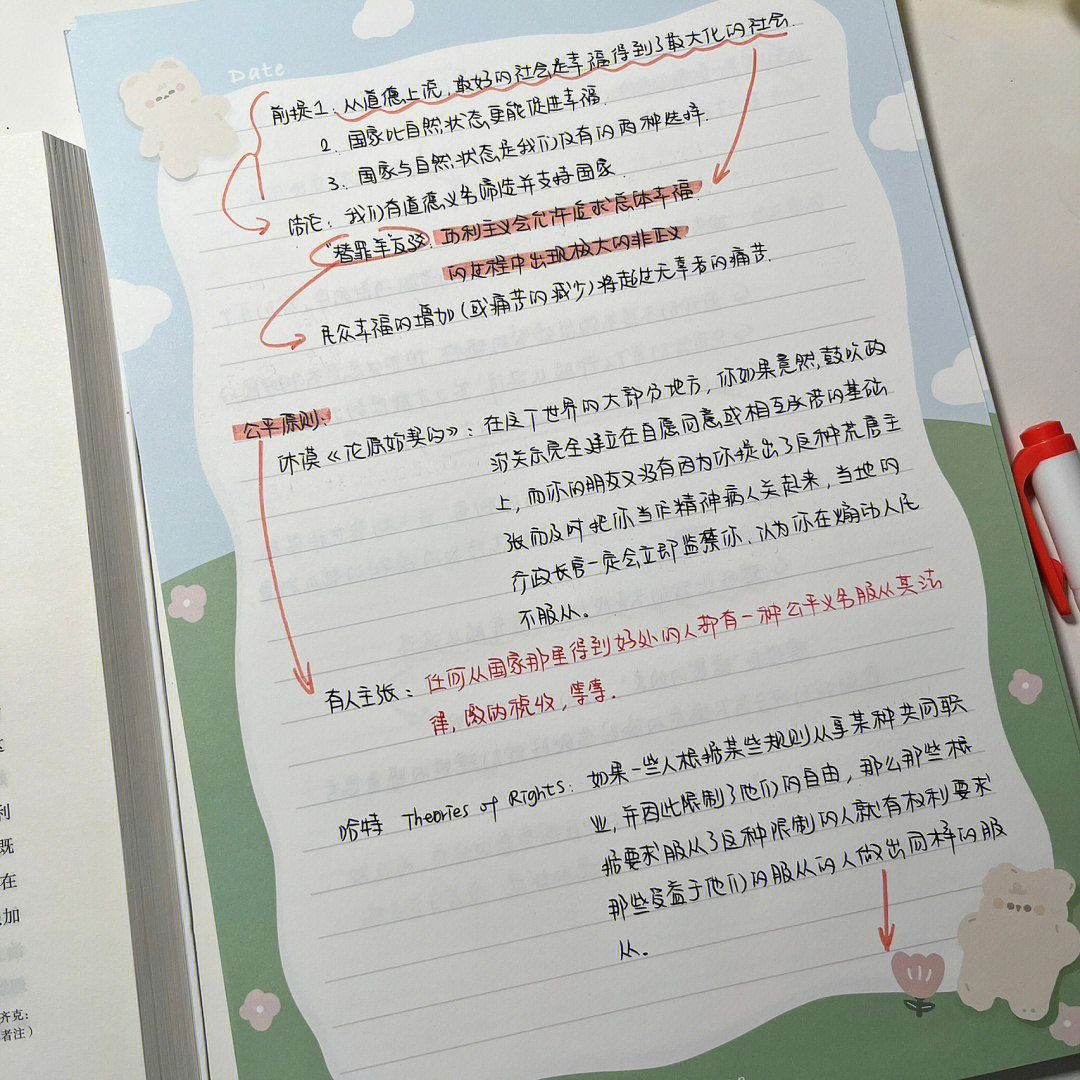 Date
前提1. 从道德上说,最好的社会是幸福得到了最大化的社会.
2. 国家比自然状态更能促进幸福.
3. 国家与自然状态是我们仅有的两种选择.
结论: 我们有道德义务缔造并支持国家.
"替罪羊"反驳: 功利主义会允许追求总体幸福
的过程中出现极大的非正义
民众幸福的增加(或痛苦的减少)将超过无辜者的痛苦.
公平原则:
休谟《论原始契约》: 在这个世界的大部分地方,你如果竟然鼓吹政
治关系完全建立在自愿同意或相互承诺的基础
上,而你的朋友又没有因为你提出了这种荒唐主
张而及时把你当作精神病人关起来,当地的
行政长官一定会立即监禁你、认为你在煽动人民
不服从。
有人主张: 任何从国家那里得到好处的人都有一种公平义务服从其法
律,缴纳税收,等等.
哈特 Theories of Rights: 如果一些人根据某些规则从事某种共同联
业,并因此限制了他们的自由,那么那些根
据要求服从了这种限制的人就有权利要求
那些受益于他们的服从的人做出同样的服
从。
利
既
在
加
齐克:
者注)